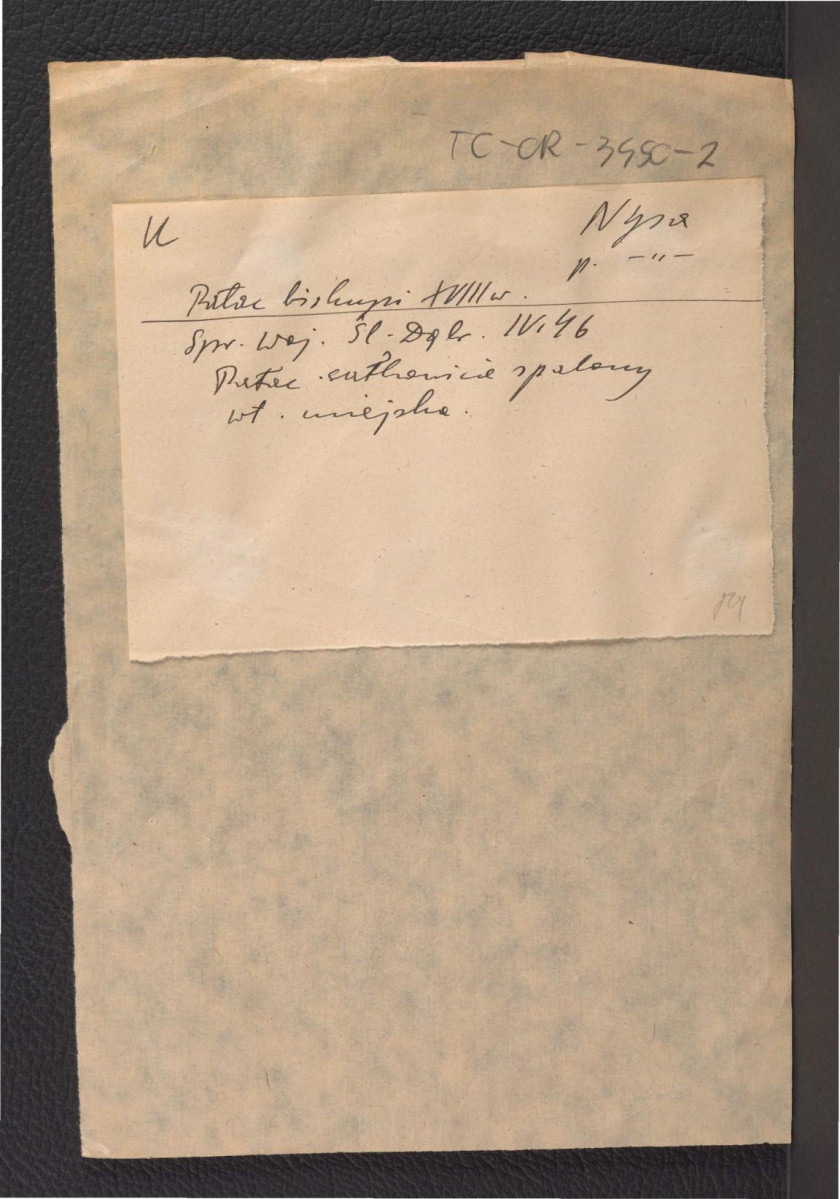 TC-OR-3490-2
U
Nysa
p. -〃-
Pałac biskupi XVIII w.
Spr. Woj. Śl-Dąbr. IV.46
Pałac całkowicie spalony
wł. miejska.